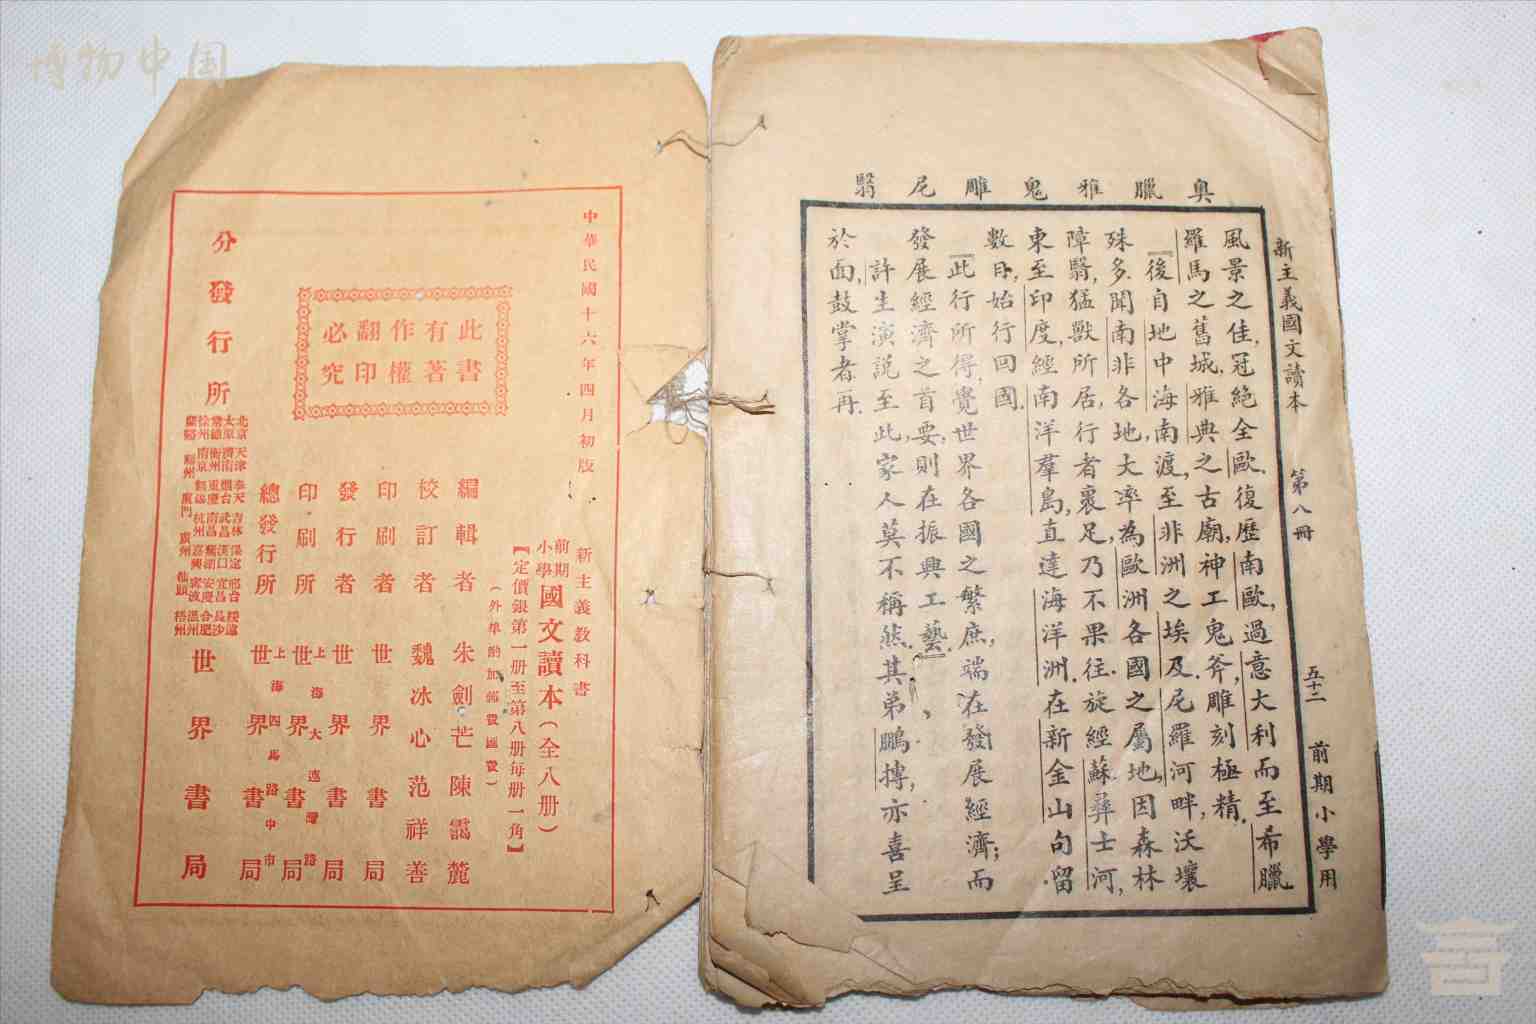 博物中国
奧臘雅鬼雕尼翳
新主義國文讀本 第八冊 五十二 前期小學用
風景之佳，冠絕全歐．復歷南歐，過意大利而至希臘
羅馬之舊城，雅典之古廟，神工鬼斧，雕刻極精．
『後自地中海南渡，至非洲之埃及．尼羅河畔，沃壤
殊多．聞南非各地，大率為歐洲各國之屬地，因森林
障翳，猛獸所居，行者裹足，乃不果往．旋經蘇彝士河，
東至印度，經南洋羣島，直達海洋洲．在新金山句留
數日，始行回國．
『此行所得，覺世界各國之繁庶，端在發展經濟；而
發展經濟之首要，則在振興工藝．』
許生演說至此，家人莫不稱然．其弟鵬摶，亦喜呈
於面，鼓掌者再．
中華民國十六年四月初版
此書
有著
作權
翻印
必究
新主義教科書
前期
小學
國文讀本（全八册）
【定價銀第一册至第八册每册一角】
（外埠酌加郵費匯費）
編輯者 朱劍芒 陳靄麓
校訂者 魏冰心 范祥善
印刷者 世界書局
發行者 世界書局
印刷所 上海大連灣路 世界書局
總發行所 上海四馬路中市 世界書局
分發行所
北京 天津 奉天 吉林 保定 邢台 綏遠
太原 濟南 烟台 武昌 漢口 宜昌 長沙
常德 衡州 重慶 南昌 蕪湖 安慶 合肥
徐州 南京 無錫 杭州 嘉興 寧波 溫州
蘭谿 廈門 廣州 汕頭 梧州
世界書局